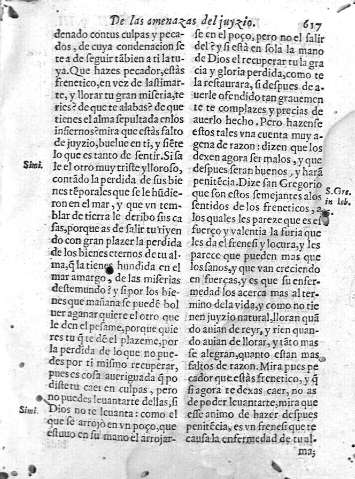 De las amenazas del juyzio.
617
denado contus culpas y peca-
dos, de cuya condenacion se
te a de seguir tãbien a ti la tu-
ya. Que hazes pecador, estàs
frenetico, en vez de lastimar-
te, y llorar tu gran miseria, te
ries? de que te alabas? de que
tienes el alma sepultada en los
infiernos? mira que estàs falto
de juyzio, buelue en ti, y siẽte
lo que es tanto de sentir. Si sa
le el otro muy triste y lloroso,
contãdo la perdida de sus bie
nes tẽporales que se le hũdie-
ron en el mar, y que vn tem-
blar de tierra le deribò sus ca
sas, porque as de salir tu riyen
do con gran plazer la perdida
de los bienes eternos de tu al-
ma, q̃ la tienes hundida en el
mar amargo, de las miserias
deste mundo? y si por los bie-
nes que mañana se puedẽ bol
uer a ganar quiere el otro que
le den el pesame, porque quie
res tu q̃ te dẽ el plazeme, por
la perdida de lo que no pue-
des por ti mismo recuperar,
pues es cosa aueriguada q̃ po
diste tu caer en culpas, pero
no puedes leuantarte dellas, si
Dios no te leuanta: como el
que se arrojò en vn poço, que
estuuo en su mano el arrojar-
Simi.
Simi.
se en el poço, pero no el salir
del? y si està en sola la mano
de Dios el recuperar tu la gra
cia y gloria perdida, como te
la restaurarà, si despues de a-
uerle ofendido tan grauemen
te te complazes y precias de
auerlo hecho. Pero hazense
estos tales vna cuenta muy a-
gena de razon: dizen que los
dexen agora ser malos, y que
despues seran buenos, y harã
penitẽcia. Dize san Gregorio
que son estos semejantes a los
sentidos de los freneticos, a
los quales les parece que es es
fuerço y valentia la furia que
les da el frenesi y locura, y les
parece que pueden mas que
los sanos, y que van creciendo
en fuerças, y es que su enfer-
medad los acerca mas al ter-
mino de la vida, y como no tie
nen juyzio natural, lloran quã
do auian de reyr, y rien quan-
do auian de llorar, y tãto mas
se alegran, quanto estan mas
faltos de razon. Mira pues pe
cador que estàs frenetico, y q̃
si agora te dexas caer, no as
de poder leuantarte, mira que
esse animo de hazer despues
penitẽcia, es vn frenesi que te
causa la enfermedad de tu al-
ma;
S. Gre.
in Iob.